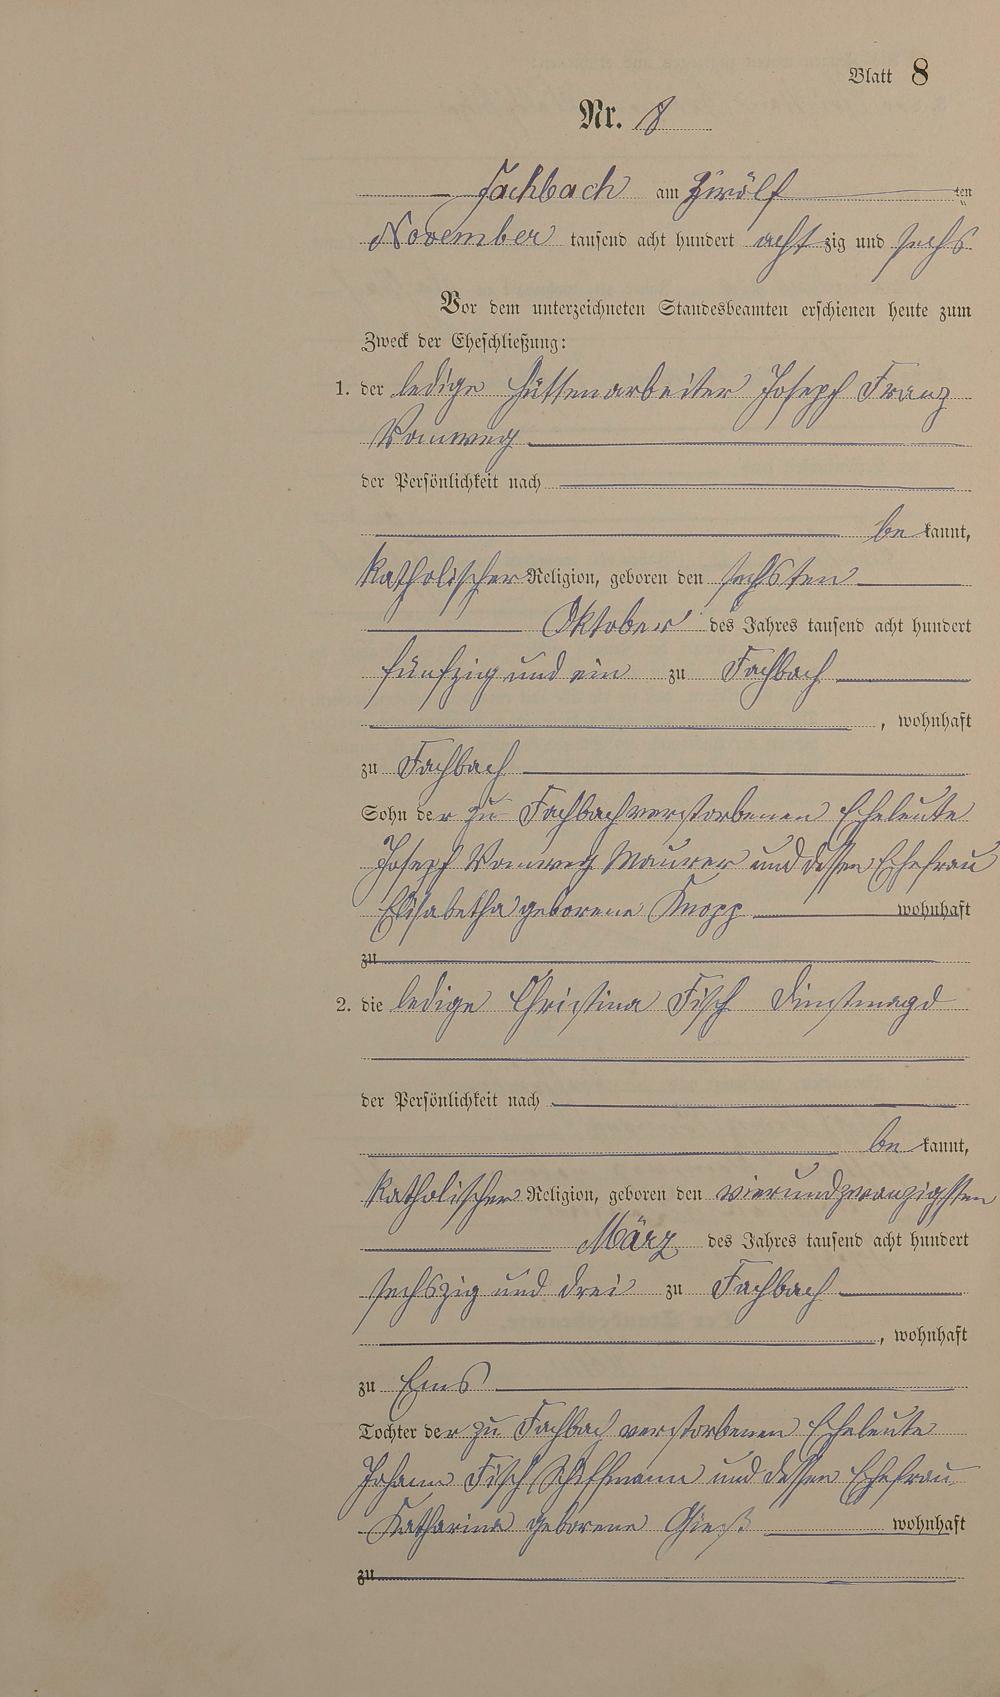 Blatt 8
Nr. 8
Fachbach am Zwölf ten
November tausend acht hundert acht zig und sechs
Vor dem unterzeichneten Standesbeamten erschienen heute zum
Zweck der Eheschließung:
1. der ledige Hüttenarbeiter Joseph Franz
Vomweg
der Persönlichkeit nach
be kannt,
katholischer Religion, geboren den sechsten
Oktober des Jahres tausend acht hundert
fünfzig und ein zu Fachbach
, wohnhaft
zu Fachbach
Sohn der zu Fachbach verstorbenen Eheleute
Joseph Vomweg Maurer und dessen Ehefrau
Elisabetha geborene Knopp wohnhaft
zu
2. die ledige Christina Fisch Dienstmagd
der Persönlichkeit nach
be kannt,
katholischer Religion, geboren den vierundzwanzigsten
März des Jahres tausend acht hundert
sechszig und drei zu Fachbach
, wohnhaft
zu Ems
Tochter der zu Fachbach verstorbenen Eheleute
Johann Fisch Schiffmann und dessen Ehefrau
Katharina geborene wohnhaft
zu